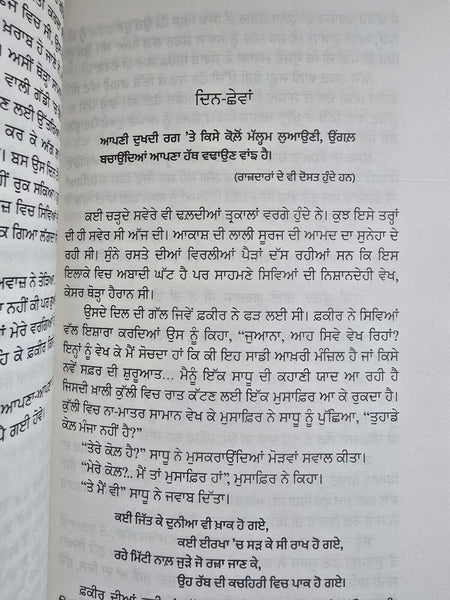 ਜੀਵਨ ਵਿਚ ਸੀ, ਉਸ
ਖ਼ਰਾਬ ਹੋ ਸਾਡੇ
ਅਸੀਂ ਥੋੜ੍ਹਾ ਸਾ
ਵਾਲੀ ਗੱਡੀ ਚ
ਕਰ ਕੇ ਅੱਗ
ਬਸ ਉਸ ਦਿਨ
ਆਪਣਾ-ਆਪ
ਪੈ ਗਈ ਹੋਵੇ।
ਦਿਨ-ਛੇਵਾਂ
ਆਪਣੀ ਦੁਖਦੀ ਰਗ 'ਤੇ ਕਿਸੇ ਕੋਲੋਂ ਮੱਲ੍ਹਮ ਲੁਆਉਣੀ, ਉਂਗਲ
ਬਚਾਉਂਦਿਆਂ ਆਪਣਾ ਹੱਥ ਵਢਾਉਣ ਵਾਂਙ ਹੈ।
(ਰਾਜ਼ਦਾਰਾਂ ਦੇ ਵੀ ਦੋਸਤ ਹੁੰਦੇ ਹਨ)
ਕਈ ਚੜ੍ਹਦੇ ਸਵੇਰੇ ਵੀ ਢਲਦੀਆਂ ਤ੍ਰਕਾਲਾਂ ਵਰਗੇ ਹੁੰਦੇ ਨੇ। ਕੁਝ ਇਸੇ ਤਰ੍ਹਾਂ
ਦੀ ਹੀ ਸਵੇਰ ਸੀ ਅੱਜ ਦੀ। ਆਕਾਸ਼ ਦੀ ਲਾਲੀ ਸੂਰਜ ਦੀ ਆਮਦ ਦਾ ਸੁਨੇਹਾ ਦੇ
ਰਹੀ ਸੀ। ਸੁੰਨੇ ਰਸਤੇ ਦੀਆਂ ਵਿਰਲੀਆਂ ਪੈੜਾਂ ਦੱਸ ਰਹੀਆਂ ਸਨ ਕਿ ਇਸ
ਇਲਾਕੇ ਵਿਚ ਅਬਾਦੀ ਘੱਟ ਹੈ ਪਰ ਸਾਹਮਣੇ ਸਿਵਿਆਂ ਦੀ ਨਿਸ਼ਾਨਦੇਹੀ ਵੇਖ,
ਕੇਸਰ ਥੋੜ੍ਹਾ ਹੈਰਾਨ ਸੀ।
ਉਸਦੇ ਦਿਲ ਦੀ ਗੱਲ ਜਿਵੇਂ ਫ਼ਕੀਰ ਨੇ ਫੜ ਲਈ ਸੀ। ਫ਼ਕੀਰ ਨੇ ਸਿਵਿਆਂ
ਵੱਲ ਇਸ਼ਾਰਾ ਕਰਦਿਆਂ ਉਸ ਨੂੰ ਕਿਹਾ, "ਜੁਆਨਾ, ਆਹ ਸਿਵੇ ਵੇਖ ਰਿਹਾਂ?
ਇਨ੍ਹਾਂ ਨੂੰ ਵੇਖ ਕੇ ਮੈਂ ਸੋਚਦਾ ਹਾਂ ਕਿ ਕੀ ਇਹ ਸਾਡੀ ਆਖ਼ਰੀ ਮੰਜ਼ਿਲ ਹੈ ਜਾਂ ਕਿਸੇ
ਨਵੇਂ ਸਫ਼ਰ ਦੀ ਸ਼ੁਰੂਆਤ... ਮੈਨੂੰ ਇੱਕ ਸਾਧੂ ਦੀ ਕਹਾਣੀ ਯਾਦ ਆ ਰਹੀ ਹੈ
ਜਿਸਦੀ ਖ਼ਾਲੀ ਕੁੱਲੀ ਵਿਚ ਰਾਤ ਕੱਟਣ ਲਈ ਇੱਕ ਮੁਸਾਫ਼ਿਰ ਆ ਕੇ ਰੁਕਦਾ ਹੈ।
ਕੁੱਲੀ ਵਿਚ ਨਾ-ਮਾਤਰ ਸਾਮਾਨ ਵੇਖ ਕੇ ਮੁਸਾਫ਼ਿਰ ਨੇ ਸਾਧੂ ਨੂੰ ਪੁੱਛਿਆ, "ਤੁਹਾਡੇ
ਕੋਲ ਮੰਜਾ ਨਹੀਂ ਹੈ?"
"ਤੇਰੇ ਕੋਲ ਹੈ?" ਸਾਧੂ ਨੇ ਮੁਸਕਰਾਉਂਦਿਆਂ ਮੋੜਵਾਂ ਸਵਾਲ ਕੀਤਾ।
"ਮੇਰੇ ਕੋਲ?.. ਮੈਂ ਤਾਂ ਮੁਸਾਫ਼ਿਰ ਹਾਂ", ਮੁਸਾਫ਼ਿਰ ਨੇ ਕਿਹਾ।
"ਤੇ ਮੈਂ ਵੀ" ਸਾਧੂ ਨੇ ਜਵਾਬ ਦਿੱਤਾ।
ਕਈ ਜਿੱਤ ਕੇ ਦੁਨੀਆ ਵੀ ਖ਼ਾਕ ਹੋ ਗਏ,
ਕਈ ਈਰਖਾ 'ਚ ਸੜ ਕੇ ਸੀ ਰਾਖ ਹੋ ਗਏ,
ਰਹੇ ਮਿੱਟੀ ਨਾਲ ਜੁੜੇ ਜੋ ਰਜ਼ਾ ਜਾਣ ਕੇ,
ਉਹ ਰੱਬ ਦੀ ਕਚਹਿਰੀ ਵਿਚ ਪਾਕ ਹੋ ਗਏ।